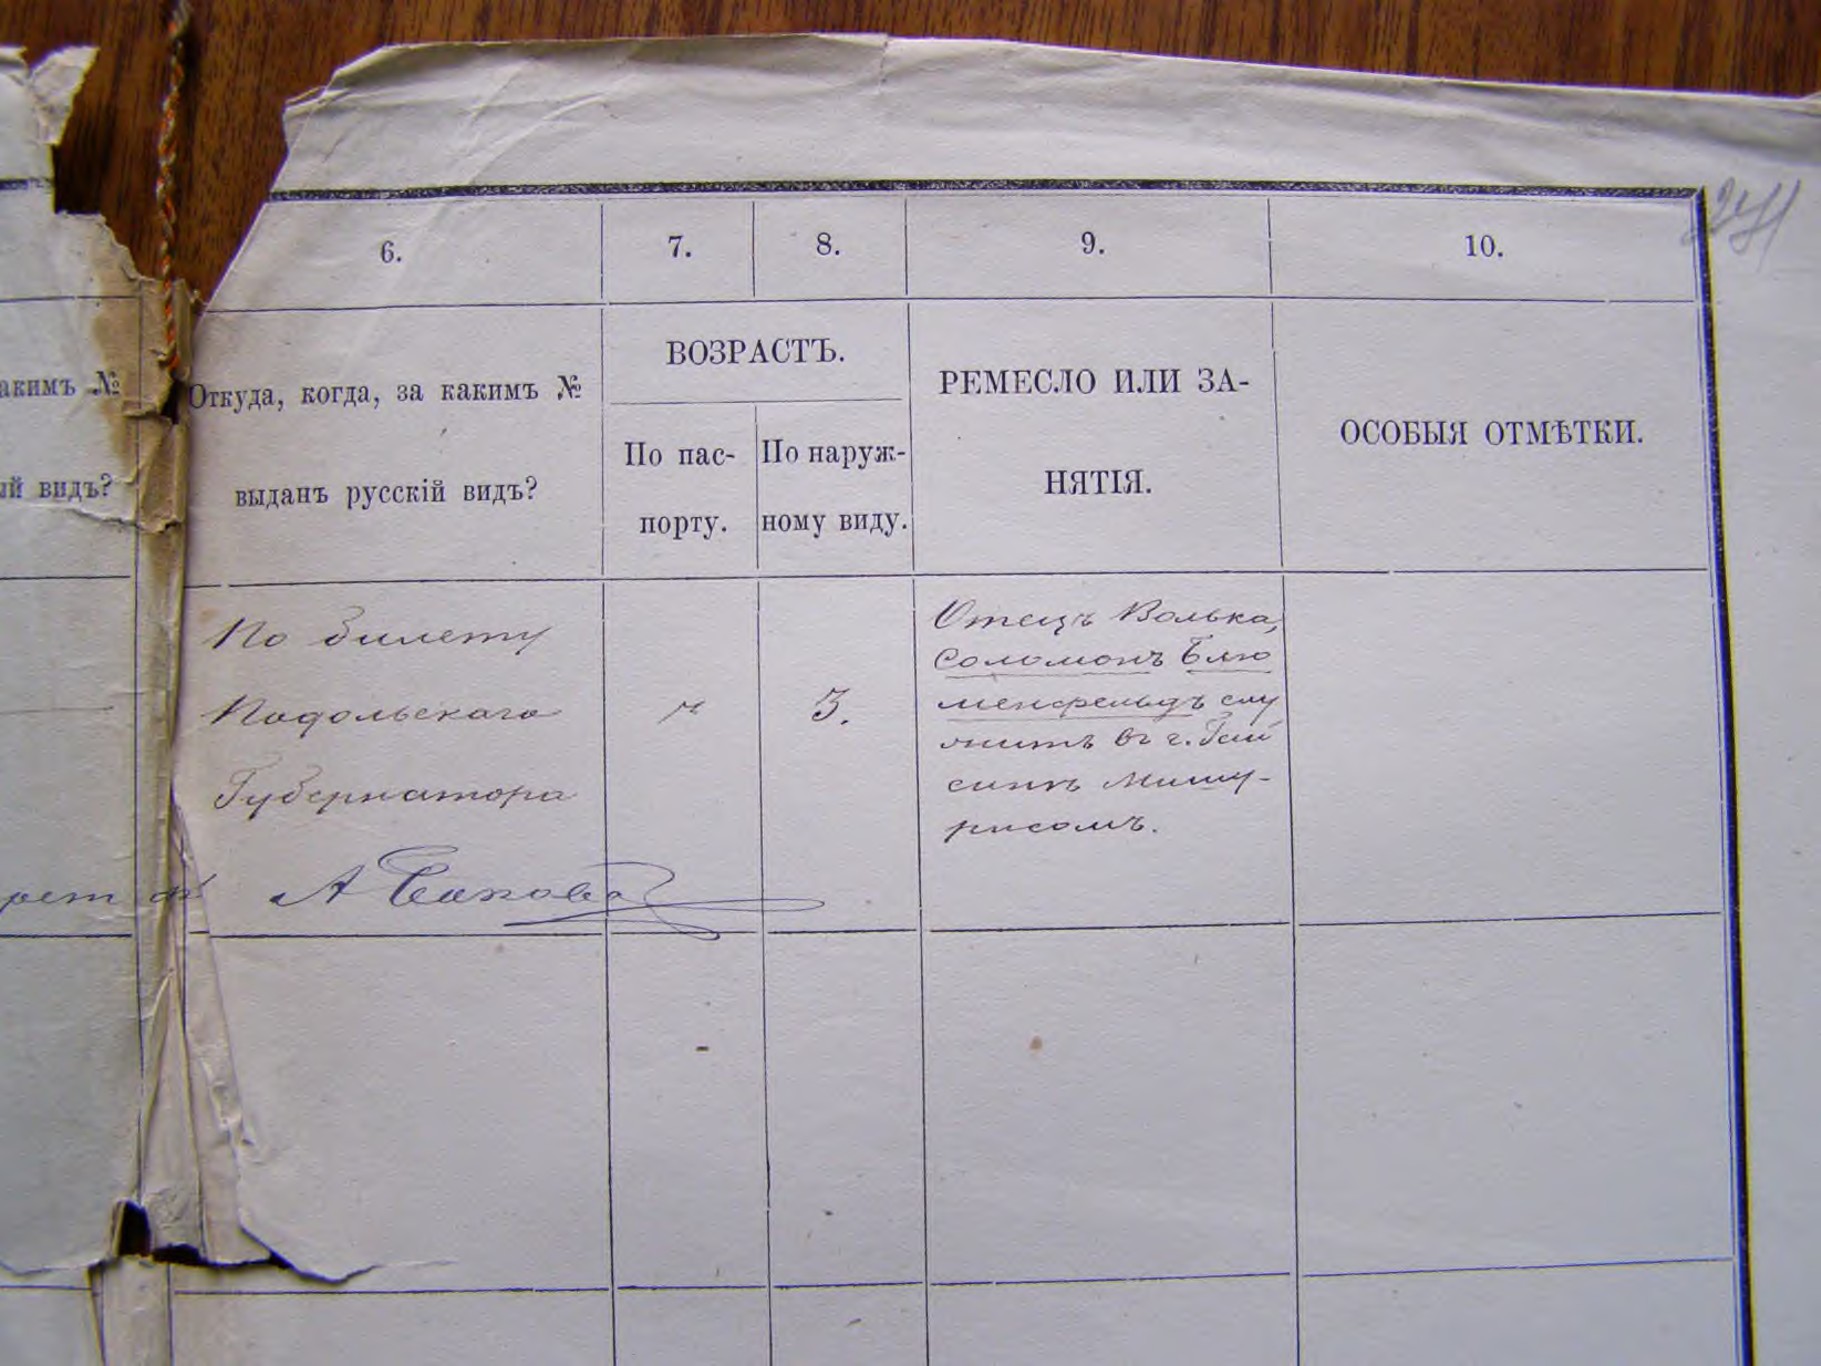 6.
7.
8.
9.
10.
акимъ №
ій видъ?
Откуда, когда, за какимъ №
выданъ русскій видъ?
ВОЗРАСТЪ.
По пас-
порту.
По наруж-
ному виду.
РЕМЕСЛО ИЛИ ЗА-
НЯТІЯ.
ОСОБЫЯ ОТМѢТКИ.
По билету
Подольскаго
Губернатора
3.
Отецъ Волька,
Соломонъ Блю
менфельдъ слу
житъ въ г. Гай
синѣ Мишу-
рисомъ.
рет
А